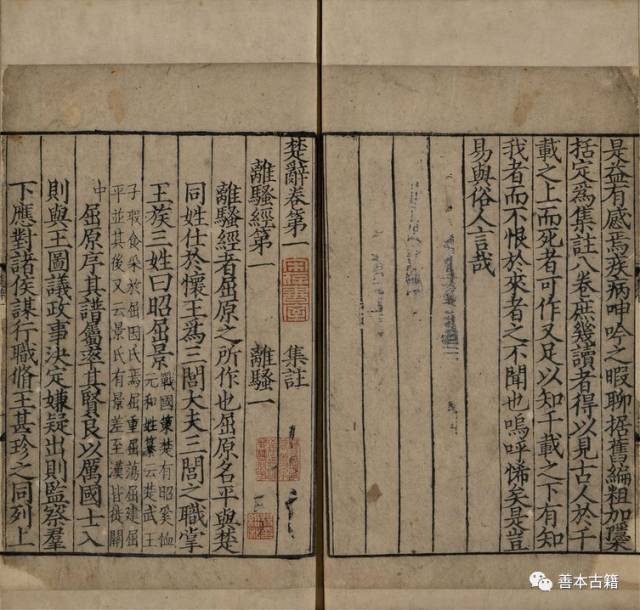 是益有感焉疾病呻吟之暇聊据舊編粗加檃
括定為集註八卷庶幾讀者得以見古人於千
載之上而死者可作又足以知千載之下有知
我者而不恨於來者之不聞也嗚呼悕矣是豈
易與俗人言哉
楚辭卷第一 集註
離騷經第一 離騷一
離騷經者屈原之所作也屈原名平與楚
同姓仕於懷王為三閭大夫三閭之職掌
王族三姓曰昭屈景
戰國策楚有昭奚恤
元和姓纂云楚武王
子瑕食采於屈因氏焉屈重屈蕩屈建屈
平並其後又云景氏有景差至漢皆徙關
中 屈原序其譜屬率其賢良以厲國士入
則與王圖議政事決定嫌疑出則監察羣
下應對諸侯謀行職脩王甚珍之同列上
善本古籍